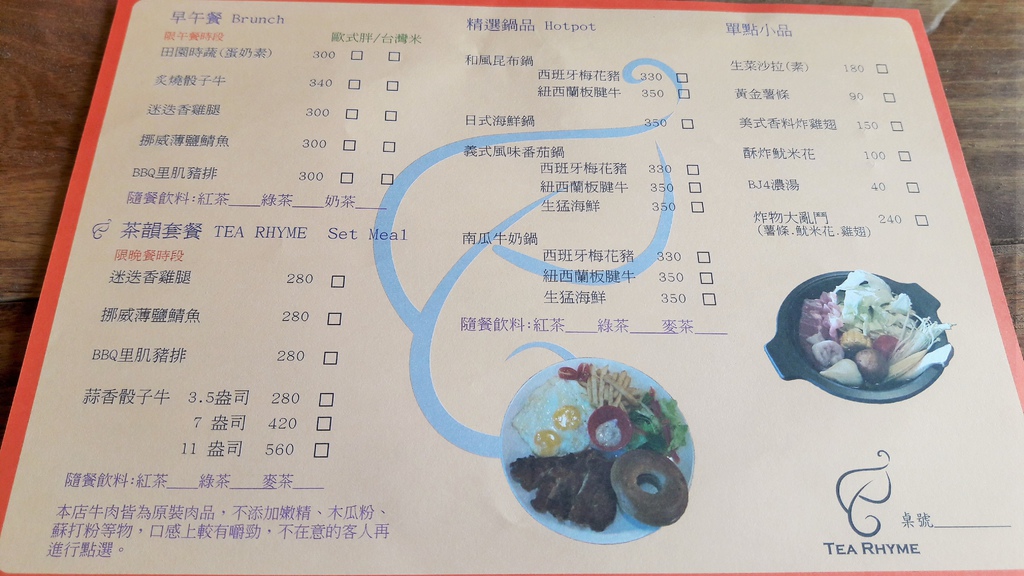 早午餐 Brunch
限午餐時段 歐式胖/台灣米
田園時蔬(蛋奶素) 300 □ □
炙燒骰子牛 340 □ □
迷迭香雞腿 300 □ □
挪威薄鹽鯖魚 300 □ □
BBQ里肌豬排 300 □ □
隨餐飲料:紅茶____綠茶____奶茶____
茶韻套餐 TEA RHYME Set Meal
限晚餐時段
迷迭香雞腿 280 □
挪威薄鹽鯖魚 280 □
BBQ里肌豬排 280 □
蒜香骰子牛 3.5盎司 280 □
7 盎司 420 □
11 盎司 560 □
隨餐飲料:紅茶____綠茶____麥茶____
本店牛肉皆為原裝肉品，不添加嫩精、木瓜粉、
蘇打粉等物，口感上較有嚼勁，不在意的客人再
進行點選。
精選鍋品 Hotpot
和風昆布鍋
西班牙梅花豬 330 □
紐西蘭板腱牛 350 □
日式海鮮鍋 350 □
義式風味番茄鍋
西班牙梅花豬 330 □
紐西蘭板腱牛 350 □
生猛海鮮 350 □
南瓜牛奶鍋
西班牙梅花豬 330 □
紐西蘭板腱牛 350 □
生猛海鮮 350 □
隨餐飲料:紅茶____綠茶____麥茶____
單點小品
生菜沙拉(素) 180 □
黃金薯條 90 □
美式香料炸雞翅 150 □
酥炸魷米花 100 □
BJ4濃湯 40 □
炸物大亂鬥 240 □
(薯條.魷米花.雞翅)
TEA RHYME
桌號__________